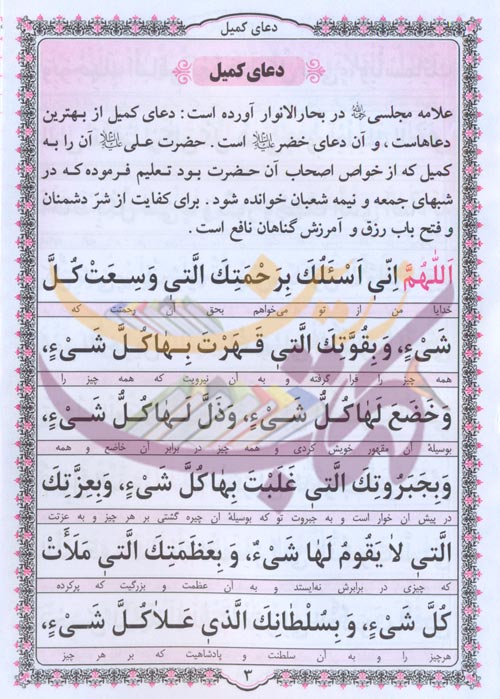 دعای کمیل
دعای کمیل
علامه مجلسی در بحارالانوار آورده است: دعای کمیل از بهترین
دعاهاست، و آن دعای خضر است. حضرت علی آن را به
کمیل که از خواص اصحاب آن حضرت بود تعلیم فرموده که در
شبهای جمعه و نیمه شعبان خوانده شود. برای کفایت از شرّ دشمنان
و فتح باب رزق و آمرزش گناهان نافع است.
اَللّٰهُمَّ اِنّى اَسْئَلُكَ بِرَحْمَتِكَ الَّتى وَسِعَتْ كُلَّ
خدایا من از تو می‌خواهم بحق آن رحمتت که
شَىْءٍ، وَ بِقُوَّتِكَ الَّتى قَهَرْتَ بِهٰا كُلَّ شَىْءٍ،
همه چیز را فرا گرفته و به آن نیرویت که همه چیز را
وَ خَضَعَ لَهٰا كُلُّ شَىْءٍ، وَ ذَلَّ لَهٰا كُلُّ شَىْءٍ،
بوسیلهٔ آن مقهور خویش کردی و همه چیز در برابر آن خاضع و همه
وَ بِجَبَرُوتِكَ الَّتى غَلَبْتَ بِهٰا كُلَّ شَىْءٍ، وَ بِعِزَّتِكَ
در پیش آن خوار است و به جبروت تو که بوسیلهٔ آن چیره گشتی بر هر چیز و به عزتت
الَّتى لاٰ يَقُومُ لَهٰا شَىْءٌ، وَ بِعَظَمَتِكَ الَّتى مَلَأَتْ
که چیزی در برابرش نه‌ایستد و به آن عظمت و بزرگیت که پرکرده
كُلَّ شَىْءٍ، وَ بِسُلْطٰانِكَ الَّذى عَلاٰ كُلَّ شَىْءٍ،
هرچیز را و به آن سلطنت و پادشاهیت که بر هر چیز
۳